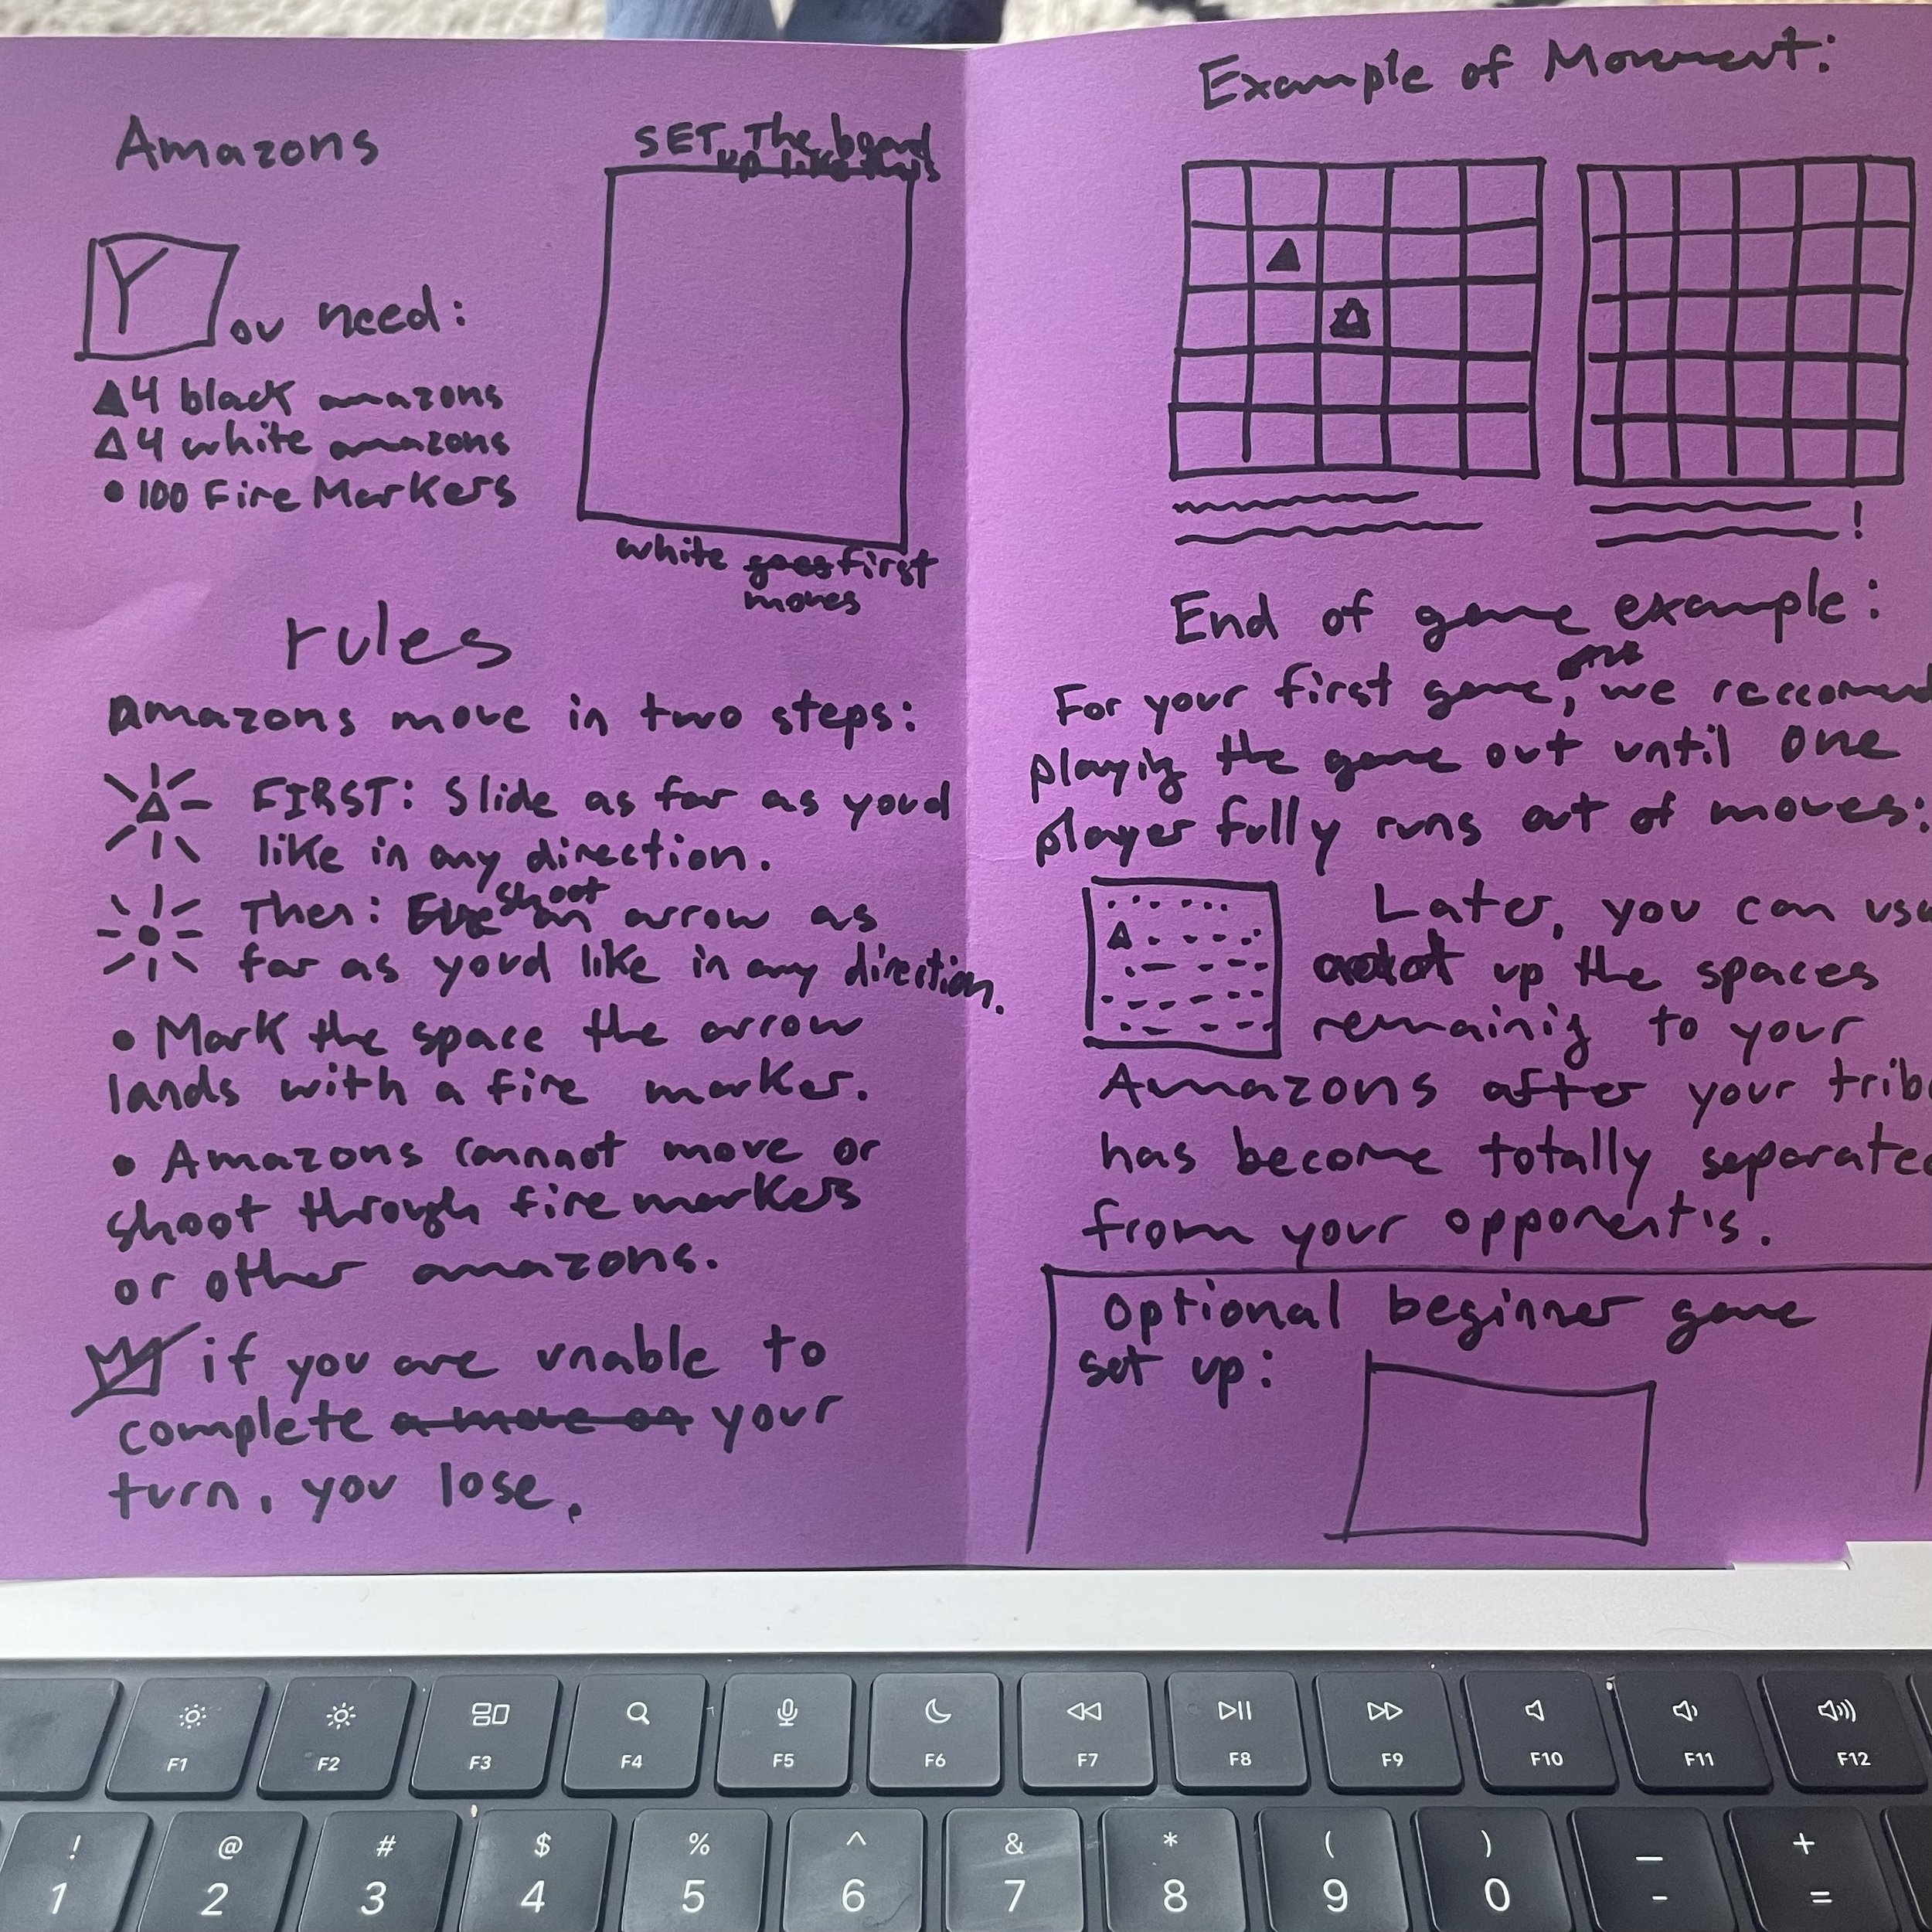 Amazons
SET The board
up like this
You need:
4 black amazons
4 white amazons
• 100 Fire Markers
white goes first
moves
rules
Amazons move in two steps:
FIRST: Slide as far as youd
like in any direction.
shoot
Then: an arrow as
far as youd like in any direction.
• Mark the space the arrow
lands with a fire marker.
• Amazons cannot move or
shoot through fire markers
or other amazons.
if you are unable to
complete a move on your
turn, you lose.
Example of Movement:
!
End of game example:
For your first game, we reccomend
playing the game out until one
player fully runs out of moves:
Later, you can use
up the spaces
remainig to your
Amazons after your tribe
has become totally separated
from your opponent's.
Optional beginner game
set up:
F1 F2 F3 F4 F5 F6 F7 F8 F9 F10 F11 F12
! @ # $ % ^ & * ( ) — +
1 2 3 4 5 6 7 8 9 0 - =